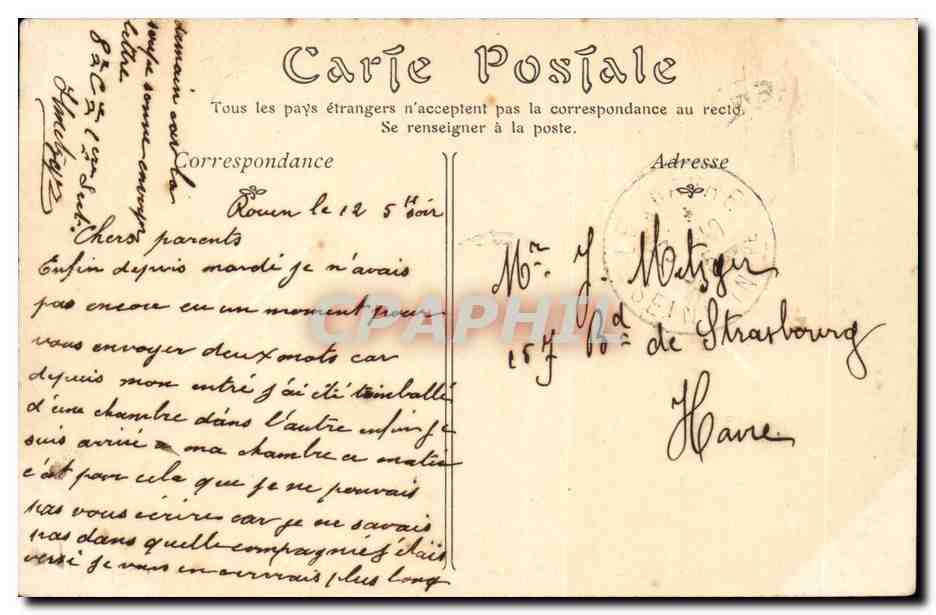 Carte Postale
Tous les pays étrangers n'acceptent pas la correspondance au recto.
Se renseigner à la poste.
Correspondance
Adresse
Rouen le 12 5 H soir
Chers parents
Enfin depuis mardi je n'avais
pas encore eu un moment pour
vous envoyer deux mots car
depuis mon entré j'ai été trimballé
d'une chambre dans l'autre enfin je
suis arrivé a ma chambre ce matin
c'est pour cela que je ne pouvais
pas vous écrire car je ne savais
pas dans quelle compagnie j'étais
versé je vous en ecrirais plus long
demain car la
soupe sonne envoyer
lettre
8e Cie 1ere Sect.
JMetzger
Mr. J. Metzger
157 Bd de Strasbourg
Havre
LE HAVRE
SEINE INF
CPAPHIL